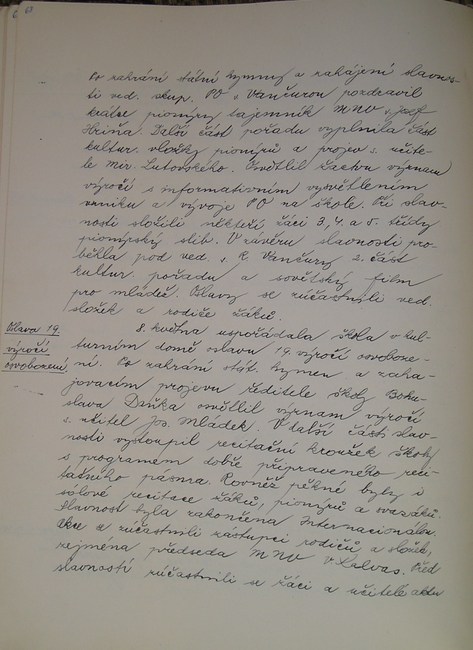 63
Po zahrání státní hymny a zahájení slavnos-
ti ved. skup. PO s. Vančurou pozdravil
krátce pionýry tajemník MNV s. Josef
Hriňa. Další část pořadu vyplnila část
kultur. vložky pionýrů a projev s. učite-
le Mir. Lutovského. Osvětlil žactvu význam
výročí s informativním vysvětlením
vzniku a vývoje PO na škole. Při slav-
nosti složili někteří žáci 3, 4. a 5. třídy
pionýrský slib. V závěru slavnosti pro-
běhla pod ved. s. R. Vančury 2. část
kultur. pořadu a sovětský film
pro mládež. Oslavy se zúčastnili ved.
složek a rodiče žáků.
Oslava 19.
výročí
osvobození
8. května uspořádala škola v kul-
turním domě oslavu 19. výročí osvoboze-
ní. Po zahrání stát. hymen a zaha-
jovacím projevu ředitele školy Bohu-
slava Daňka osvětlil význam výročí
s. učitel Jos. Mládek. V další části slav-
nosti vystoupil recitační kroužek školy
s programem dobře připraveného reci-
tačního pásma. Rovněž pěkné byly i
sólové recitace žáků, pionýrů a svazáků.
Slavnost byla zakončena Internacionálou.
Akce se zúčastnili zástupci rodičů a složek,
zejména předseda MNV V. Kalvas. Před
slavností zúčastnili se žáci a učitelé aktu